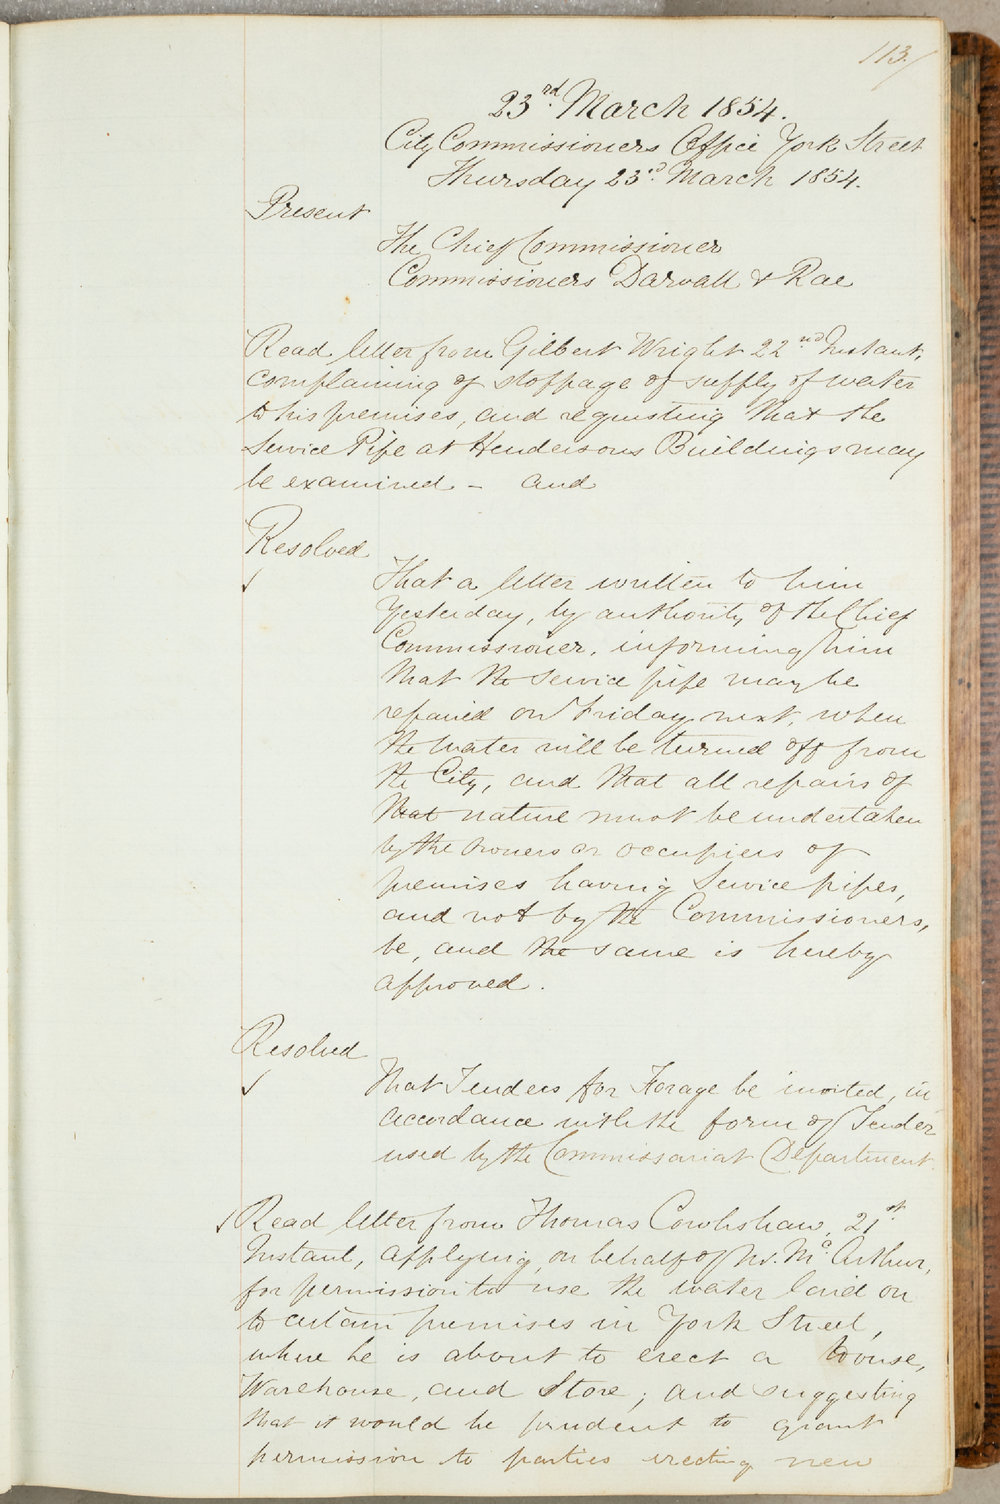 113.
23rd. March 1854.
City Commissioners Office York Street
Thursday 23d. March 1854.
Present
The Chief Commissioner
Commissioners Darvall & Rae
Read letter from Gilbert Wright 22nd Instant,
complaining of stoppage of supply of water
to his premises, and requesting that the
Service Pipe at Hendersons Buildings may
be examined - and
Resolved
✓ That a letter written to him
Yesterday, by authority of the Chief
Commissioner, informing him
that the service pipe may be
repaired on Friday next, when
the water will be turned off from
the City, and that all repairs of
that nature must be undertaken
by the owners or occupiers of
premises having Service pipes,
and not by the Commissioners,
be, and the same is hereby
approved.
Resolved
✓ That Tenders for Forage be invited, in
accordance with the form of Tender
used by the Commissariat Department.
✓ Read letter from Thomas Cowlishaw, 21st.
Instant, applying, on behalf of Mc. Arthur,
for permission to use the water laid on
to certain premises in York Street,
where he is about to erect a House,
Warehouse, and Store; and suggesting
that it would be prudent to grant
permission to parties erecting new